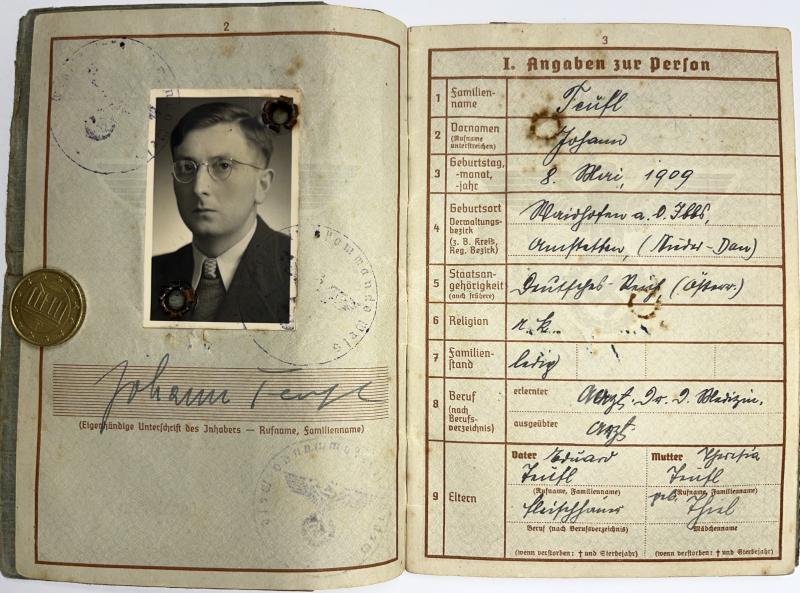 2
Johann Teufl
(Eigenhändige Unterschrift des Inhabers — Rufname, Familienname)
3
I. Angaben zur Person
1 Familien-
name
Teufl
2 Vornamen
(Rufname
unterstreichen)
Johann
3 Geburtstag,
-monat,
-jahr
8. Mai, 1909
4 Geburtsort
Verwaltungs-
bezirk
(z. B. Kreis,
Reg. Bezirk)
Waidhofen a. d. Ybbs,
Amstetten, (Nieder-Don)
5 Staatsan-
gehörigkeit
(auch frühere)
Deutsches-Reich, (Österr.)
6 Religion
r. k.
7 Familien-
stand
ledig
8 Beruf
(nach
Berufs-
verzeichnis)
erlernter
Arzt. Dr. d. Medizin.
ausgeübter
Arzt.
9 Eltern
Vater Eduard
Teufl
(Rufname, Familienname)
Fleischhauer
Beruf (nach Berufsverzeichnis)
(wenn verstorben: † und Sterbejahr)
Mutter Theresia
Teufl
(Rufname, Familienname)
geb. Thiel
Mädchenname
(wenn verstorben: † und Sterbejahr)